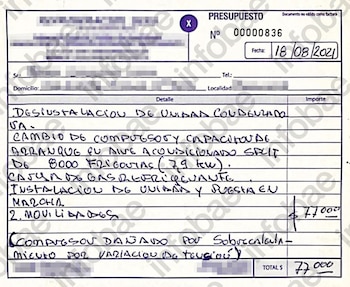 PRESUPUESTO
Documento no válido como factura
X
Nº 00000836
Fecha: 18/08/2021
Sr.
Tel.:
Domicilio:
Localidad:
Detalle
Importe
DESINSTALACION DE UNIDAD CONDENSADO
RA.
CAMBIO DE COMPRESOR Y CAPACITOR DE
ARRANQUE EN AIRE ACONDICIONADO SPLIT
DE 8000 FRIGORIAS (7,9 KW).
CARGA DE GAS REFRIGERANTE.
INSTALACION DE UNIDAD Y PUESTA EN
MARCHA
2 MOVILIDADES
$ 77.000
(COMPRESOR DAÑADO POR SOBRECALENTA-
MIENTO POR VARIACION DE TENSION)
TOTAL $
77.000
infobae